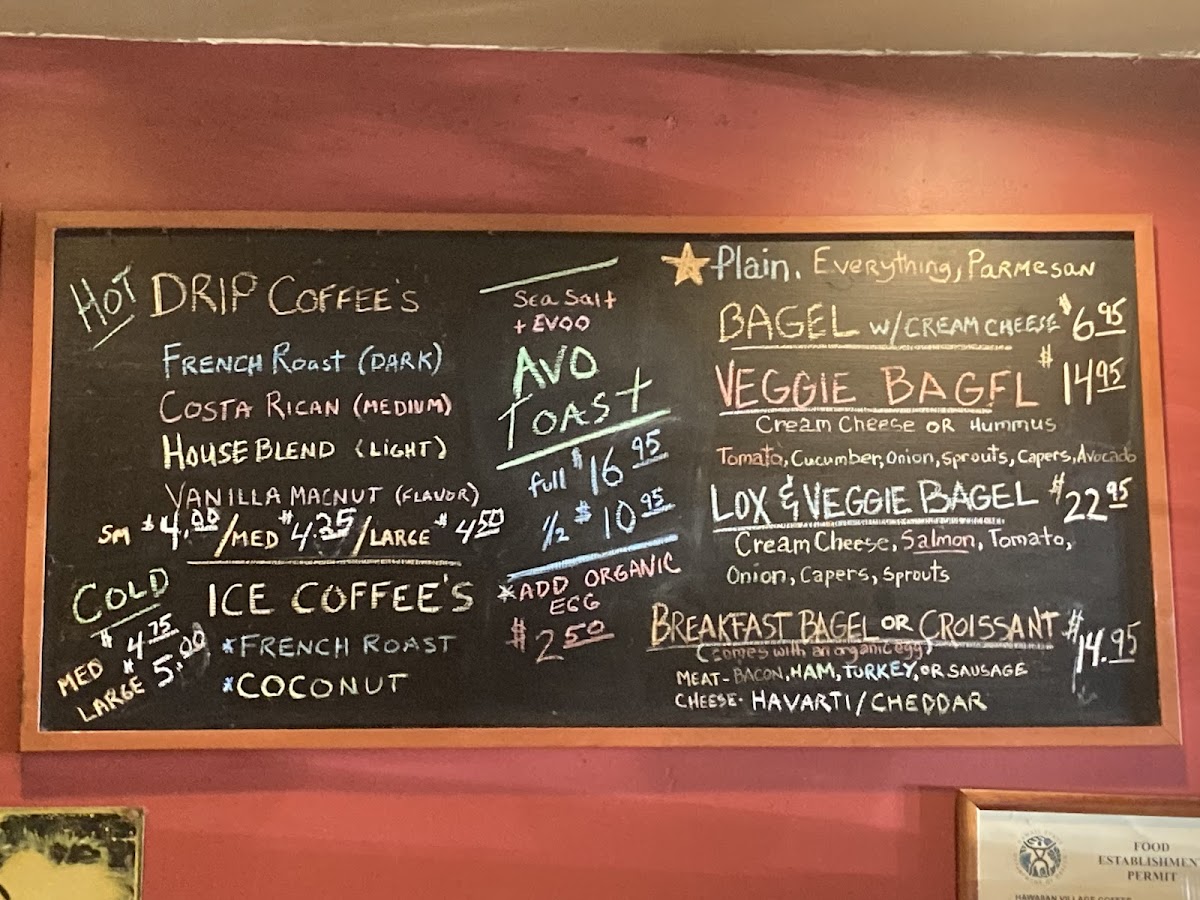 HOT DRIP COFFEE'S
FRENCH ROAST (DARK)
COSTA RICAN (MEDIUM)
HOUSE BLEND (LIGHT)
VANILLA MACNUT (FLAVOR)
SM $4.00/MED $4.35/LARGE $4.50
COLD
MED $4.75
LARGE $5.00
ICE COFFEE'S
*FRENCH ROAST
*COCONUT
Sea Salt
+ EVOO
AVO
TOAST
full $16.95
1/2 $10.95
*ADD ORGANIC
EGG
$2.50
Plain, Everything, Parmesan
BAGEL W/CREAM CHEESE $6.95
VEGGIE BAGEL $14.95
Cream Cheese OR Hummus
Tomato, Cucumber, Onion, Sprouts, Capers, Avocado
LOX & VEGGIE BAGEL $22.95
Cream Cheese, Salmon, Tomato,
Onion, Capers, Sprouts
BREAKFAST BAGEL OR CROISSANT $14.95
(comes with an organic egg)
MEAT- BACON, HAM, TURKEY, OR SAUSAGE
CHEESE- HAVARTI/CHEDDAR
FOOD
ESTABLISHMENT
PERMIT